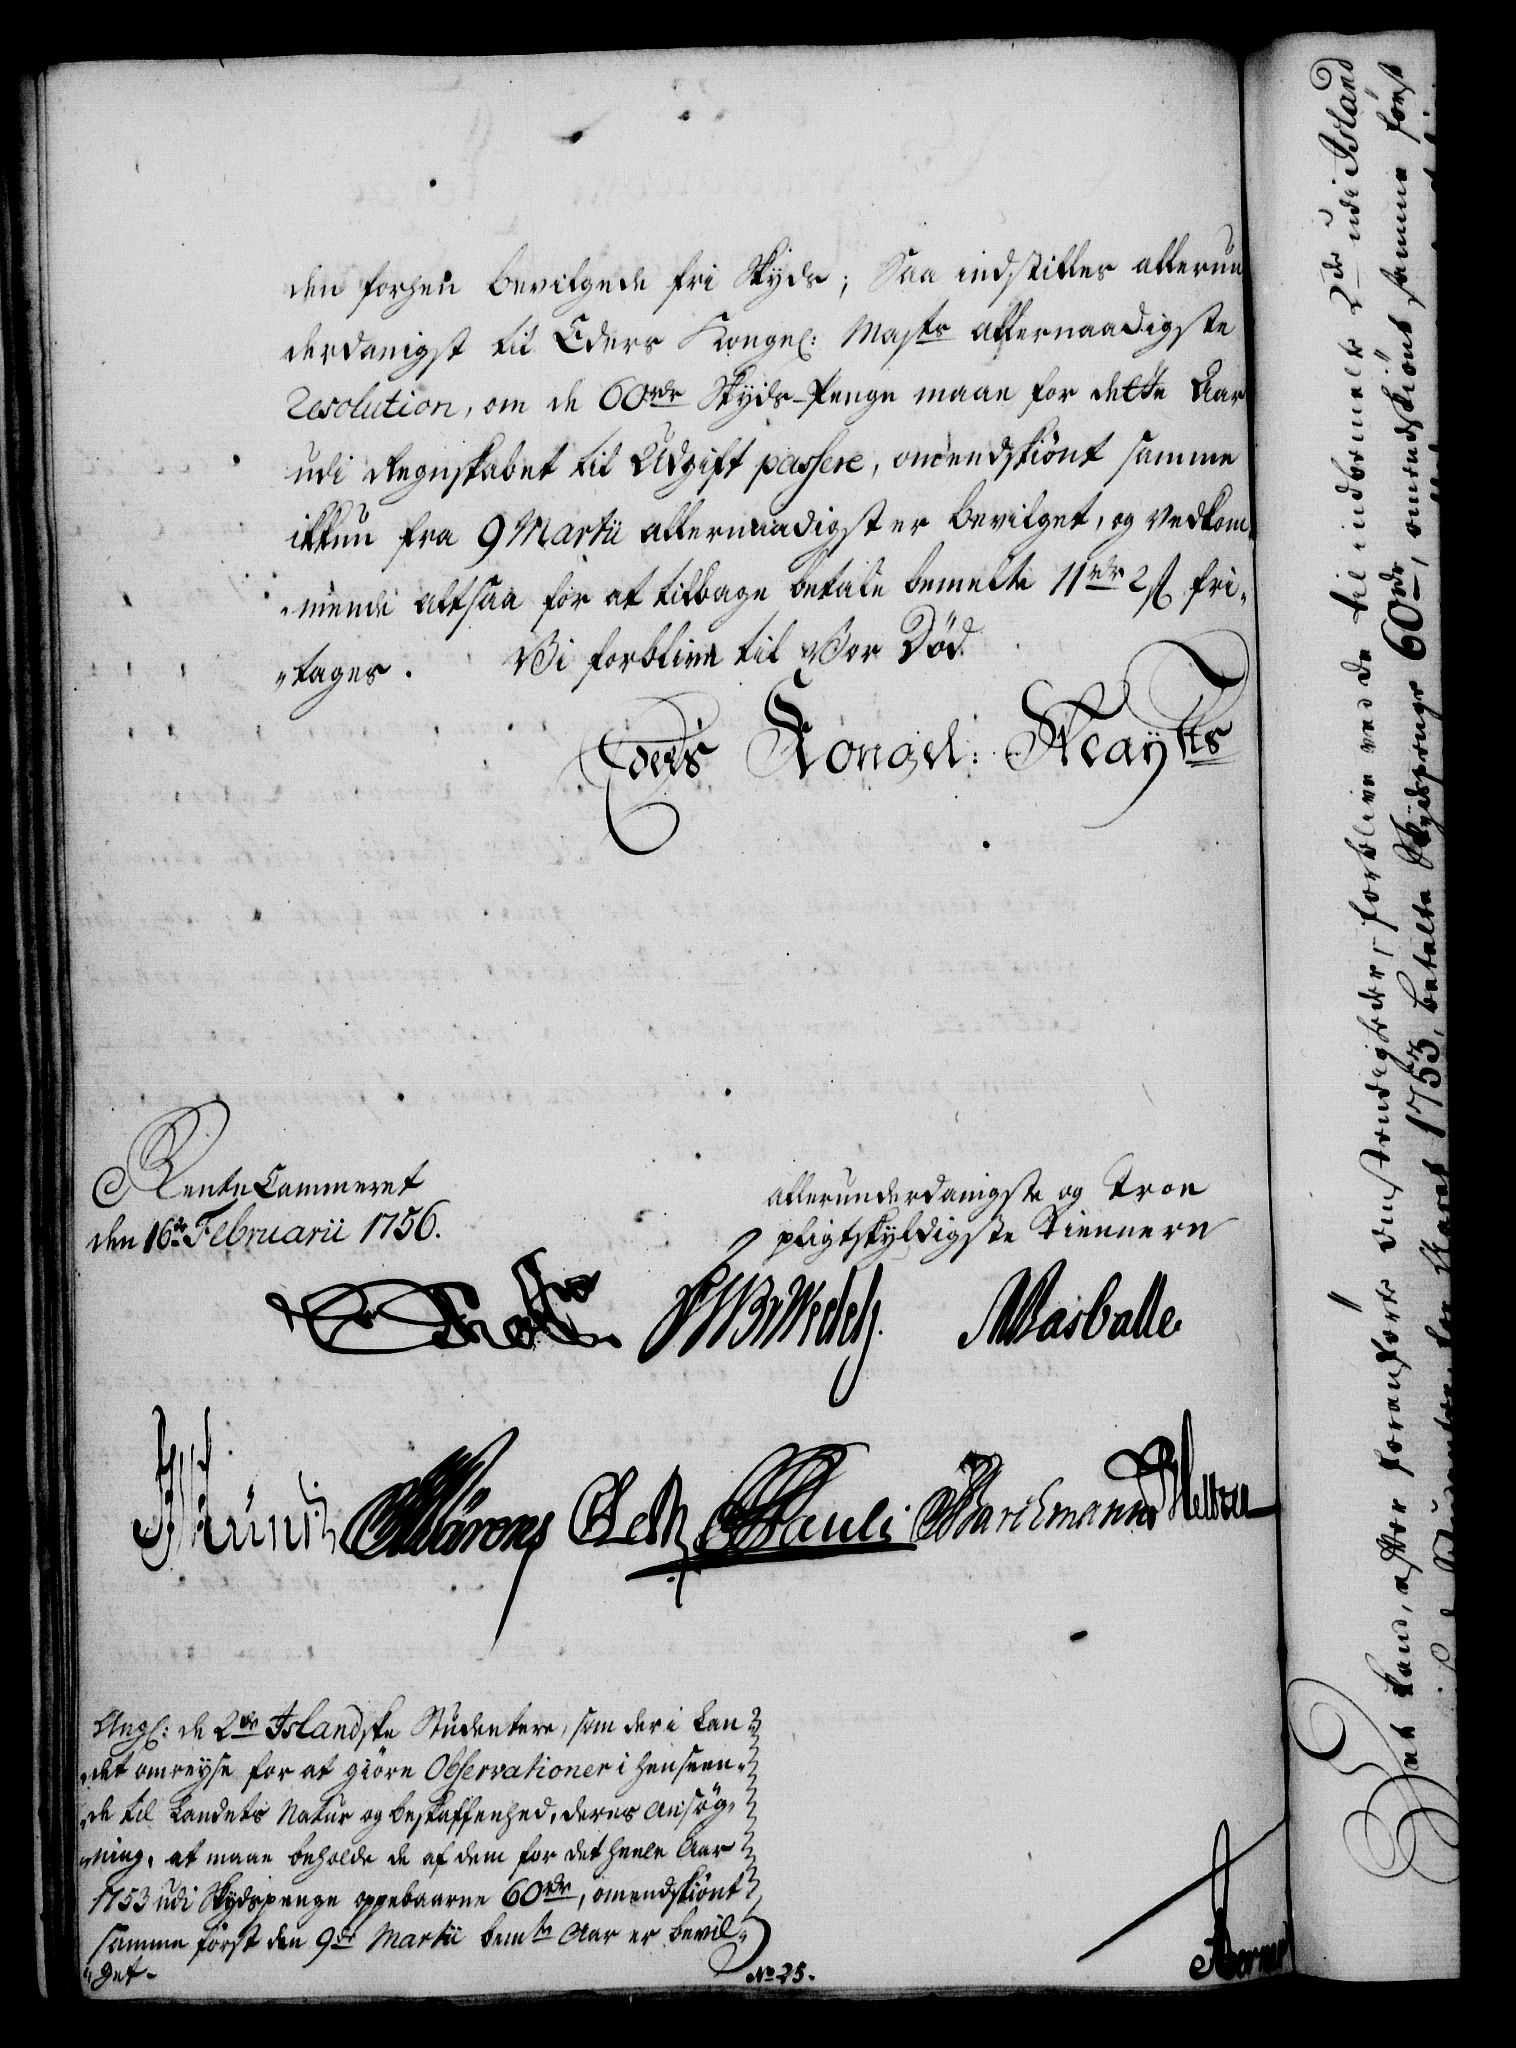 den forhen bevilgede fri Skyds; Saa indstilles allerun
derdanigst til Eders Kongel: Majts allernaadigste
Resolution, om de 60 rdr Skyds-Penge maae for dette Aar
udi Regnskabet til Udgift passere, omendskiönt samme
ikkun fra 9 Martii allernaadigst er bevilget, og vedkom„
„mende altsaa for at tilbage betale bemelte 11 rdr 2 ß fri„
„tages. Vi forblive til vor Död
Eders Kongel: Mayts
Rente Cammeret
den 16de Februarii 1756.
allerunderdanigste og troe
pligtskyldigste Tiennere
Holst
Wedel
Masballe
Pauli
Barchmann
Angl: de 2de Islandske Studentere, som der i Lan
„det omreyse for at giöre Observationer i henseen„
„de til Landets Natur og beskaffenhed, deres Ansög„
„ning, at maae beholde de af dem for det heele Aar
1753 udi Skydspenge oppebaarne 60 rdr, omendskiönt
samme först den 9de Martii bemte Aar er bevil„
„get.
No 25.
Det Land, efter foranförte omstændigheder, forblive ved de til indbemelte 2de udi Island
for Aaret 1753, betalte Skydspenge 60 rdr, omendskiönt samme först